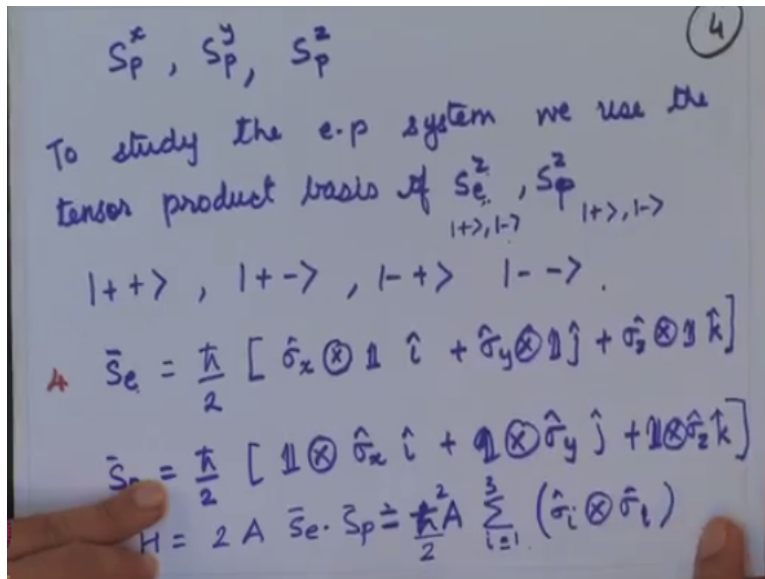 4
S_p^x , S_p^y , S_p^z
To study the e-p system we use the
tensor product basis of S_e^z , S_p^z
|+>, |-> |+>, |->
|++> , |+-> , |-+> |--> .
4 S̄_e = ħ/2 [ σ̂_x ⊗ 1 î + σ̂_y ⊗ 1 ĵ + σ̂_z ⊗ 1 k̂ ]
= ħ/2 [ 1 ⊗ σ̂_x î + 1 ⊗ σ̂_y ĵ + 1 ⊗ σ̂_z k̂ ]
H = 2 A S̄_e · S̄_p = ħ²/2 A Σ_{i=1}^{3} (σ̂_i ⊗ σ̂_i)